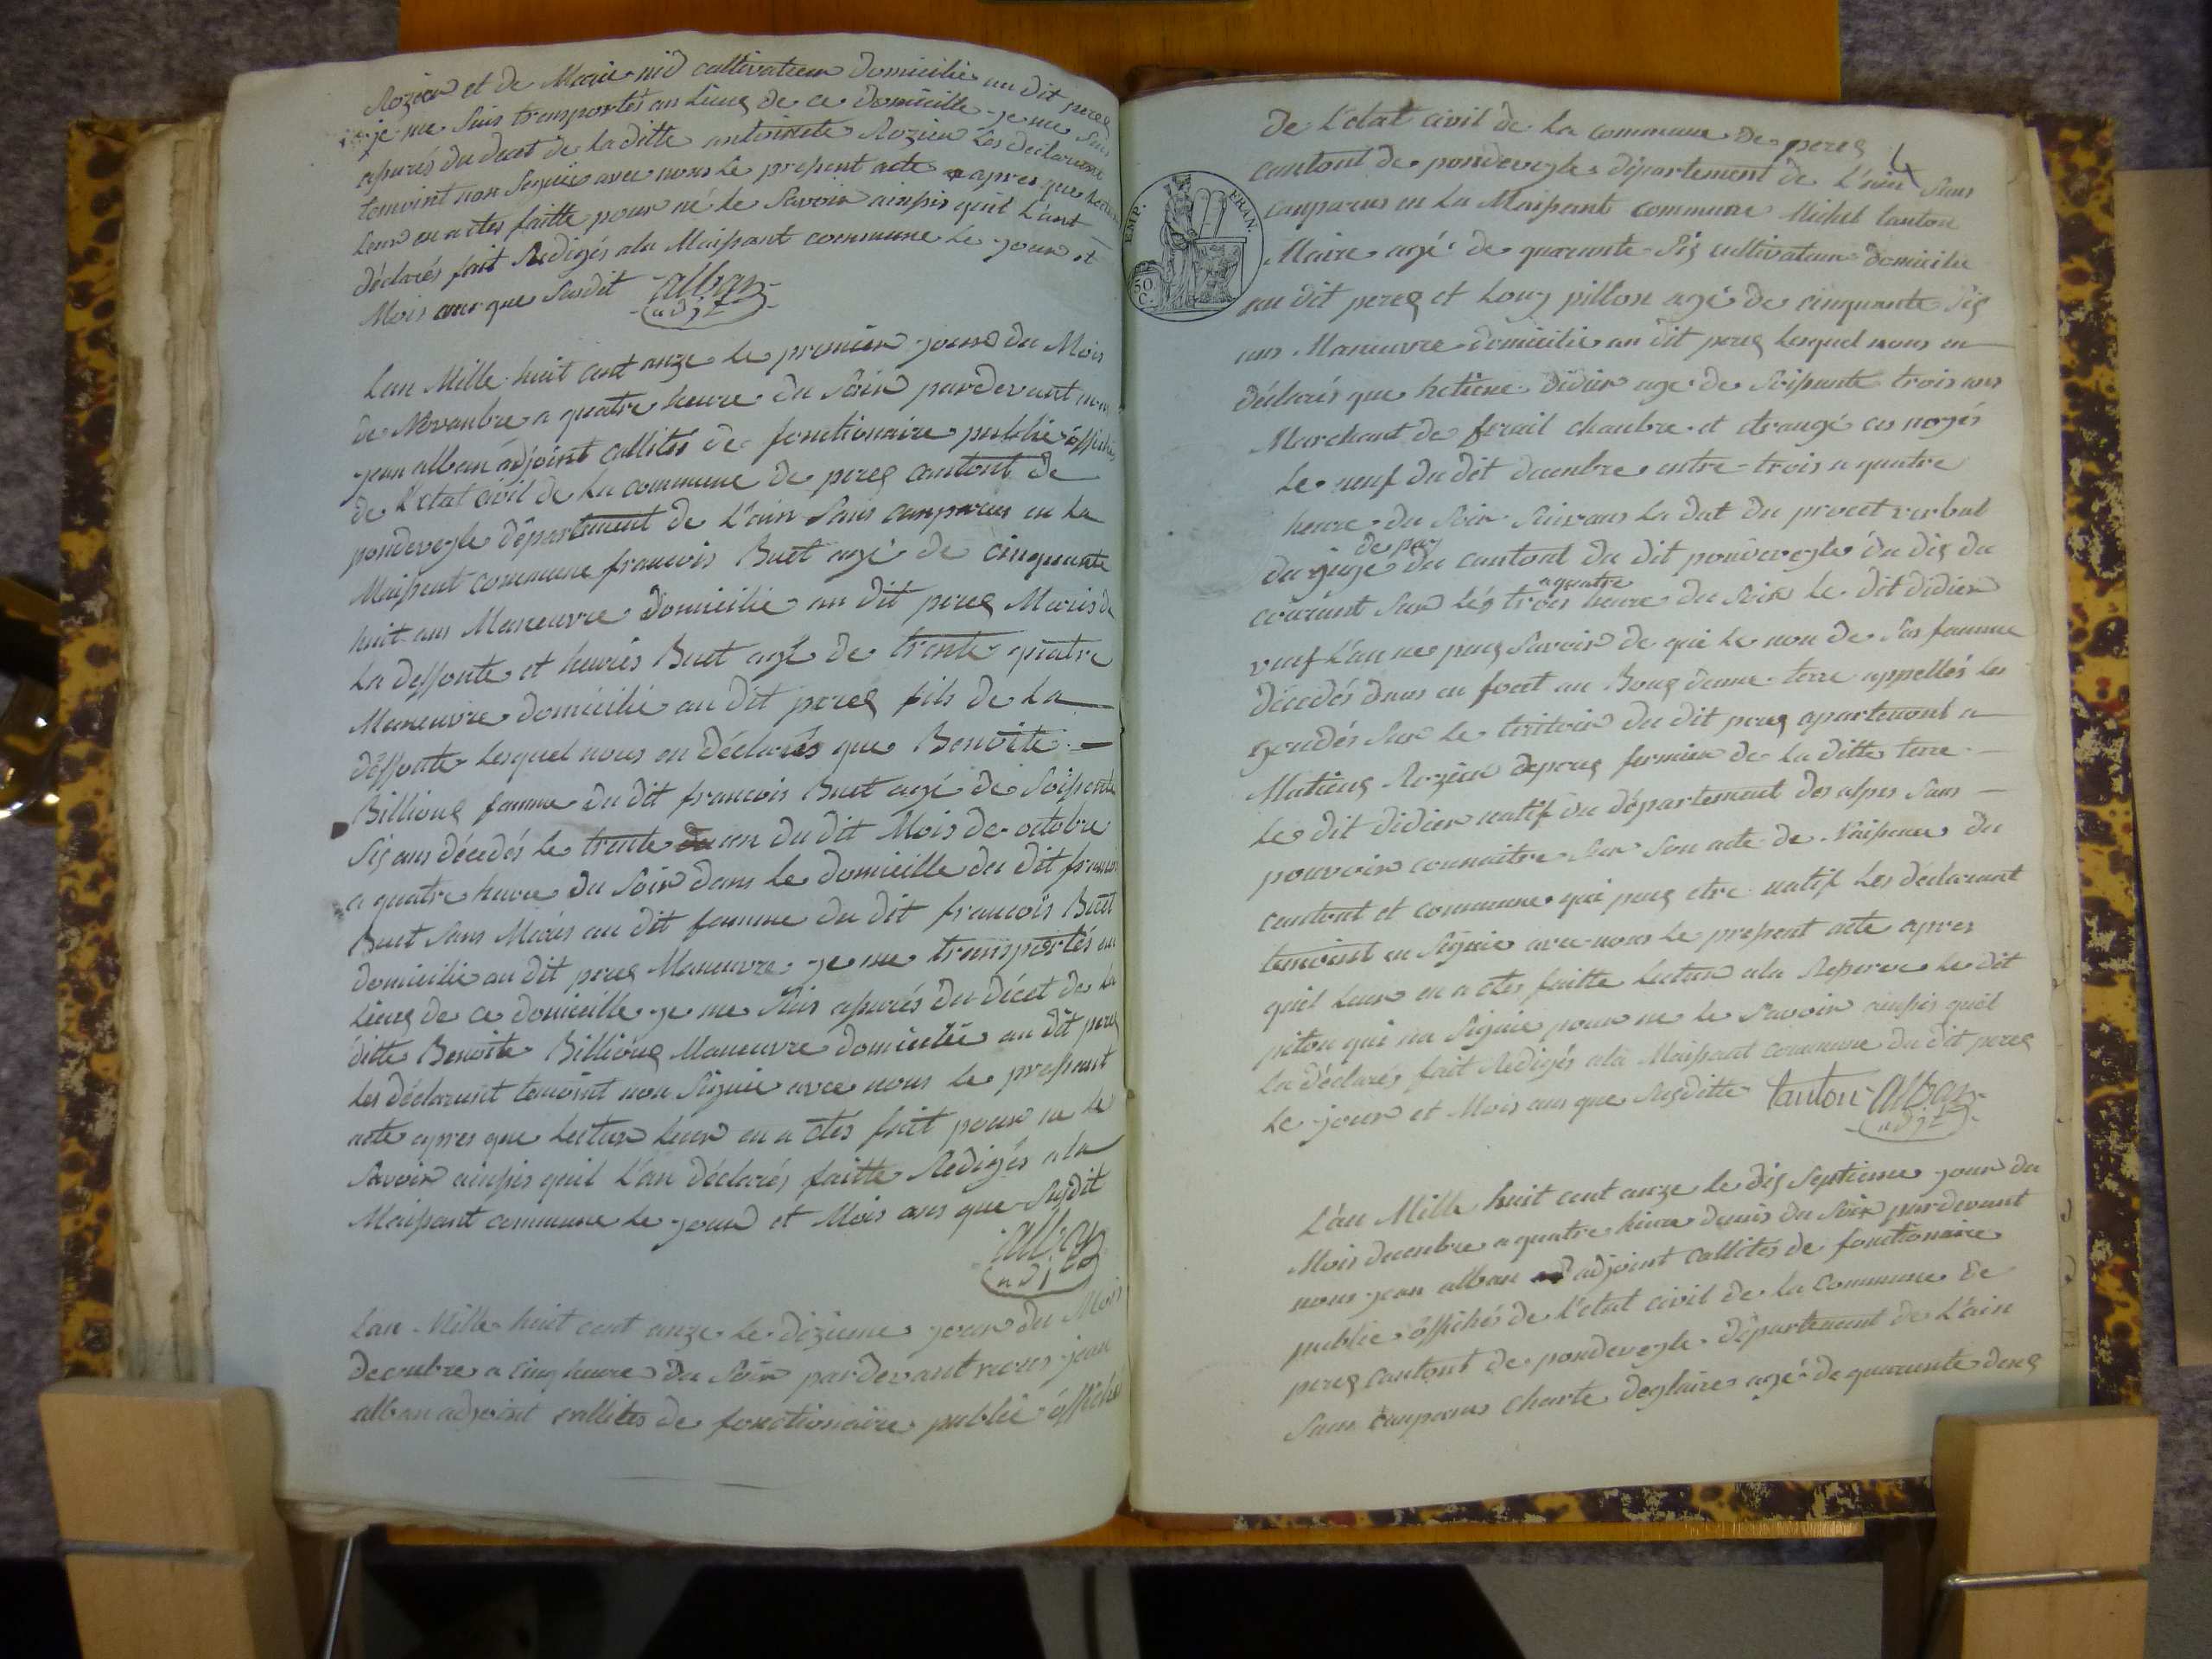 Rozier et de Marie nid cultivateur domicilie au dit pereq
je me suis transportés au lieuq de ce domicille je me suis
asurés du decet de la ditte antoinete Rozier Les declarant
temoint non Signié avec nous le present acte apres que lecture
leur en a etes faitte pour né le Savoir ainsis quil L'ant
déclarés fait Redigés ala Maisant commune Le jour et
Mois ans que Susdit alban
adjt
Lan Mille huit cent onze le premier jours du Mois
de Novanbre a quatre heure du Soir pardevant nous
jean alban adjoint callites de fonctionaire public officiés
de L'etat civil de La commune de pereq cantont de
pondeveyle département de L'ain Sans comparus en La
Maisant commune francois Buet agé de cinquante
huit ans Maneuvre domicilié au dit pereq Maris de
La deffonte et heuries Buet agé de trente quatre
Maneuvre domicilié au dit pereq fils de La
deffonte Lesquel nous on déclarés que Benoite
Billiouq famme du dit francois Buet agé de Soisente
Siq ans décedés le trente un du dit Mois de octobre
a quatre heure du Soir dans le domicille du dit francois
Buet Sans Maris au dit famme du dit francois Buet
domicilie au dit pereq Maneuvre je me transportés au
Lieuq de ce domicille je me Suis asurés du décet de la
ditte Benoite Billiouq Maneuvre domicilié au dit pereq
Les déclarant temoint non Signié avec nous le present
acte apres que Lecture Leur en a etes fait pour ne le
Savoir ainsis quil L'an déclarés faitte Redigés ala
Maisant commune Le jour et Mois ans que Susdit
alban
adjt
Lan Mille huit cent onze Le dizieme jour du Mois
decenbre a cinq heure du Soir pardevant nous jean
alban adjoint callites de fonctionaire public officié
de L'etat civil de la commune de pereq
cantont de pondeveyle département de L'ain Sans
comparus en La Maisant commune Michel tanton
Maire agé de quarante Siq cultivateur domicilié
au dit pereq et Louy pitton agé de cinquante Siq
ans Maneuvre domicilié au dit pereq Lesquel nous on
déclarés que hetiene didier age de Soisante trois ans
Marchant de
Le neuf du dit decenbre entre trois a quatre
heure du Soir Suivans La dat du procet verbal
de pay
du juge du cantont du dit pondeveyle du diq du
a quatre
courant Sur lés trois heure du Soir le dit didier
veuf L'an ne peuq Savoir de qui Le non de Sas famme
décedés dans en focet au Bouq dunne terre appellés les
Sur le tritoir du dit pereq apartenont a
Matieuq Rozier fermier de La ditte terre
Le dit didier natif du département des alpes Sans
pouvoir connaitre Sur Son acte de Naisance du
cantont et commune qui peuq etre natif Les déclarant
temoint on Signié avec nous le present acte apres
quil Leur en a etes faitte Lecture ala Reserve le dit
piton qui na Signié pour ne le Savoir ainsis quil
La déclarés fait Redigés ala Maisant commune du dit pereq
Le jour et Mois ans que Susditte tanton alban
adjt
L'an Mille huit cent onze le diq Septieme jour du
Mois decenbre a quatre heure demis du Soir pardevant
nous jean alban adjoint callités de fonctionaire
public officiés de L'etat civil de la commune de
pereq cantont de pondeveyle département de L'ain
Sans comparus Charle deglaire agé de quarante deuq
EMP. FRAN.
50 C.